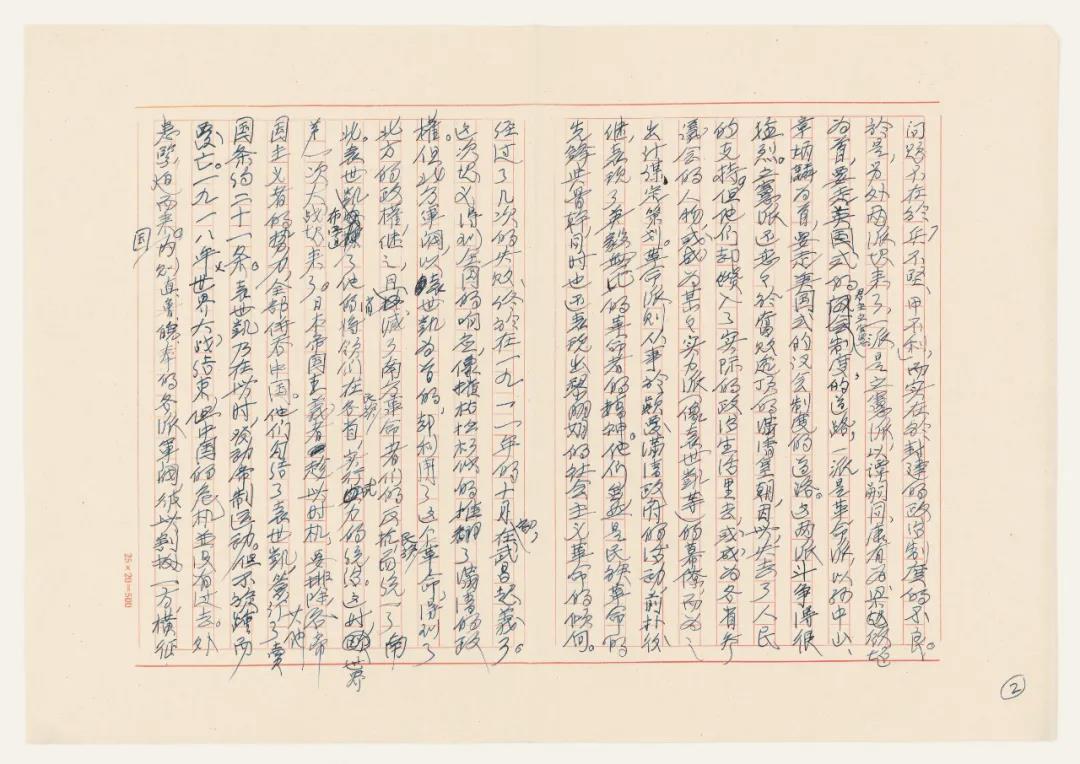 问题不在于兵不坚,甲不利,而实在于封建的政治制度的不良。
于是另外两派起来了,一派是立宪派以谭嗣同、康有为、梁启超
为首,要走英国式的君主立宪制度的道路,一派是革命派以孙中山、
章炳麟为首,要走美国式的议会制度的道路。这两派斗争得很
猛烈。立宪派还忠于腐败透顶的满清皇朝,因此失去了人民
的支持。但他们却钻入了实际的政治生活里去,或成为各省参
议会的人物,或成为某某实力派(像袁世凯等)的幕僚,而为之
出计谋策划。革命派则从事于颠覆满清政府的活动,前扑后
继,表现了英雄的革命者的精神。他们是民族革命的
先锋与骨干,同时也还表现出鲜明的社会主义革命的倾向。
经过了几次的失败,终于在一九一一年的十月,在武昌起义了,
这次起义得到全国的响应,摧枯拉朽似的推翻了满清的政
权。但北方军阀以袁世凯为首的,却利用了这个革命,得到了
北方的政权,继之,且消灭了南方革命者们的反抗而统一了南
北。袁世凯布置了他的将领们在各省,实行武力的统治。这时,世界
第一次大战起来了。日本帝国主义者趁此时机,要排除各帝
国主义者的势力,全部侵吞中国。他们勾结了袁世凯,签订了卖
国条约二十一条。袁世凯乃在此时,发动帝制运动。但不旋踵而
死亡。一九一八年世界大战结束,但中国的危机并没有过去。外
患紧迫而来。国内则直鲁皖奉的各派军阀彼此割据一方,横征
25×20=500
②